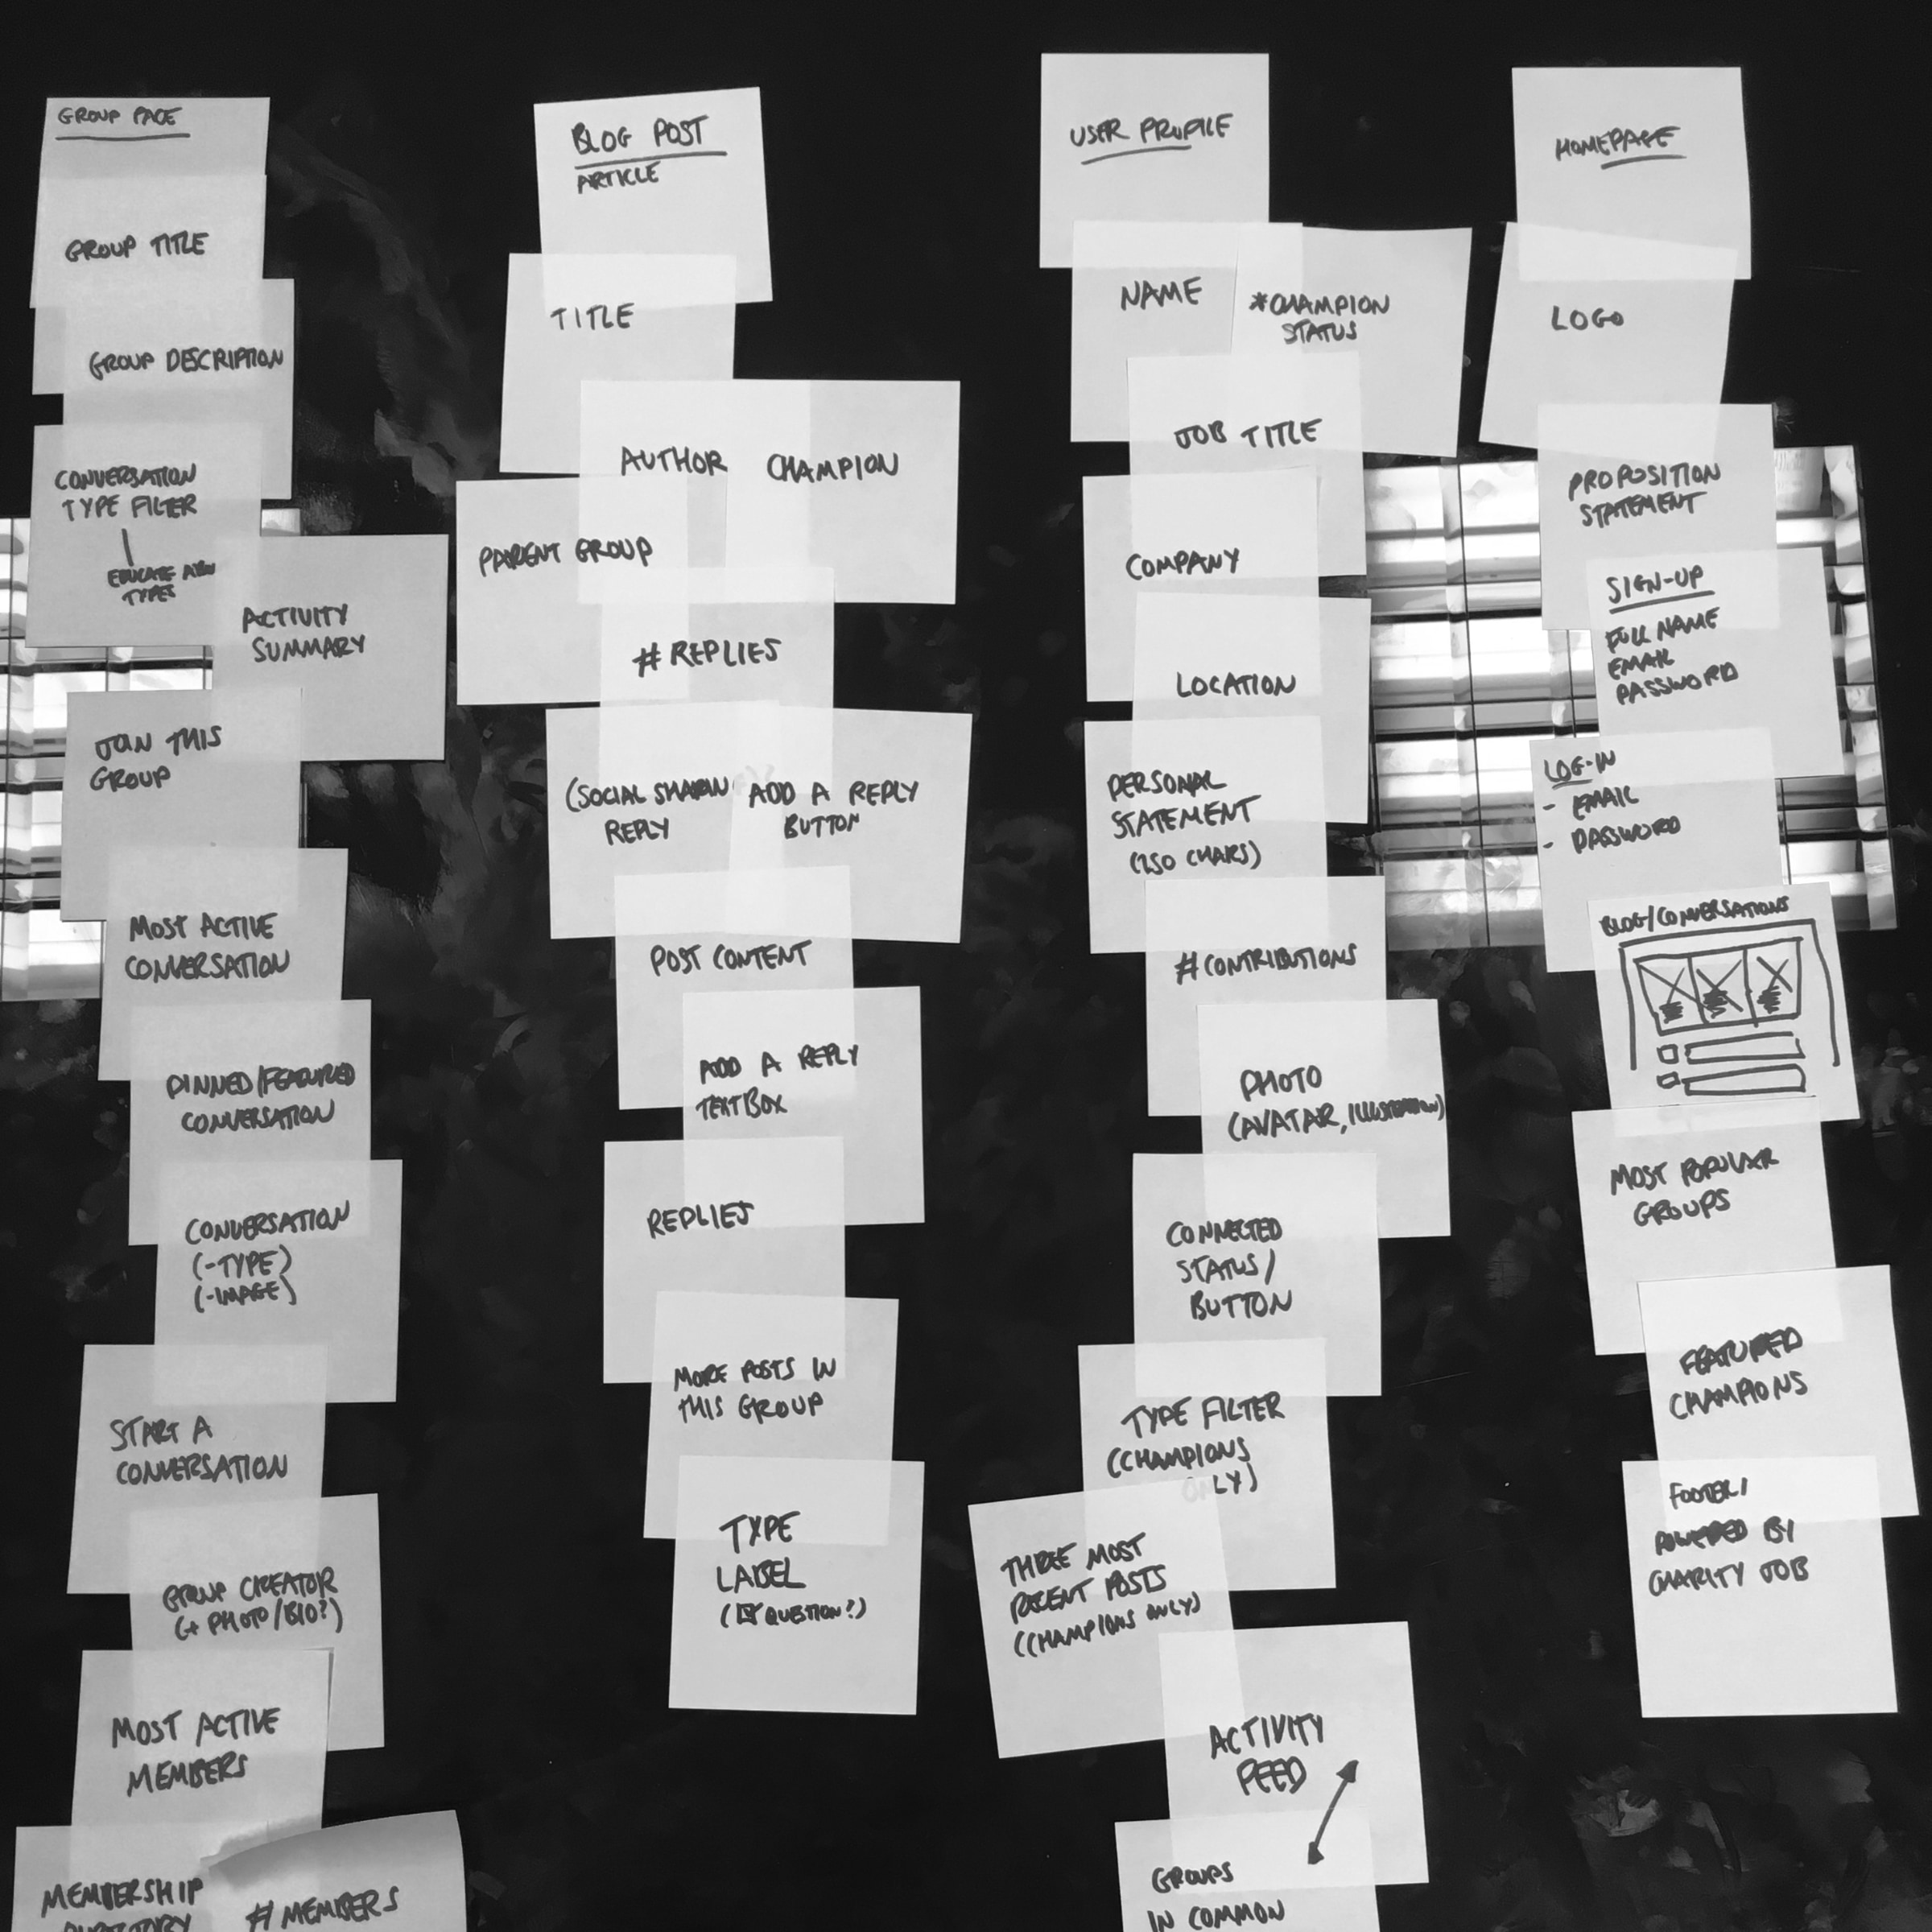 GROUP PAGE
GROUP TITLE
GROUP DESCRIPTION
CONVERSATION
TYPE FILTER
EDUCATE
TYPES
ACTIVITY
SUMMARY
JOIN THIS
GROUP
MOST ACTIVE
CONVERSATION
PINNED/FEATURED
CONVERSATION
CONVERSATION
(-TYPE)
(-IMAGE)
START A
CONVERSATION
GROUP CREATOR
(+ PHOTO/BIO?)
MOST ACTIVE
MEMBERS
MEMBERSHIP
# MEMBERS
BLOG POST
ARTICLE
TITLE
AUTHOR
CHAMPION
PARENT GROUP
# REPLIES
(SOCIAL SHARIN
REPLY
ADD A REPLY
BUTTON
POST CONTENT
ADD A REPLY
TEXTBOX
REPLIES
MORE POSTS IN
THIS GROUP
TYPE
LABEL
QUESTION?)
USER PROFILE
NAME
*CHAMPION
STATUS
JOB TITLE
COMPANY
LOCATION
PERSONAL
STATEMENT
(250 CHARS)
# CONTRIBUTIONS
PHOTO
(AVATAR, ILLUSTRATION)
CONNECTED
STATUS/
BUTTON
TYPE FILTER
(CHAMPIONS
ONLY)
THREE MOST
RECENT POSTS
(CHAMPIONS ONLY)
ACTIVITY
FEED
GROUPS
IN COMMON
HOMEPAGE
LOGO
PROPOSITION
STATEMENT
SIGN-UP
FULL NAME
EMAIL
PASSWORD
LOG-IN
- EMAIL
- PASSWORD
BLOG/CONVERSATIONS
MOST POPULAR
GROUPS
FEATURED
CHAMPIONS
FOOTER/
POWERED BY
CHARITY JOB